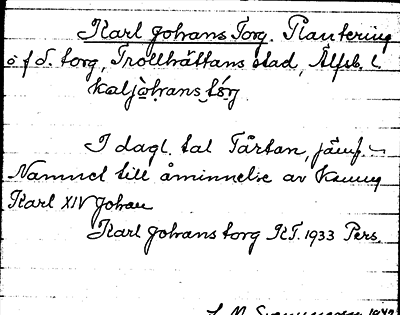 Karl Johans Torg. Plantering
o f d. torg, Trollhättans stad, Älfsb. l
kaljòhans tórg
I dagl. tal Tårtan, jämf.
Namnet till åminnelse av Konung
Karl XIV Johan
Karl Johans torg RT. 1933 Pers.